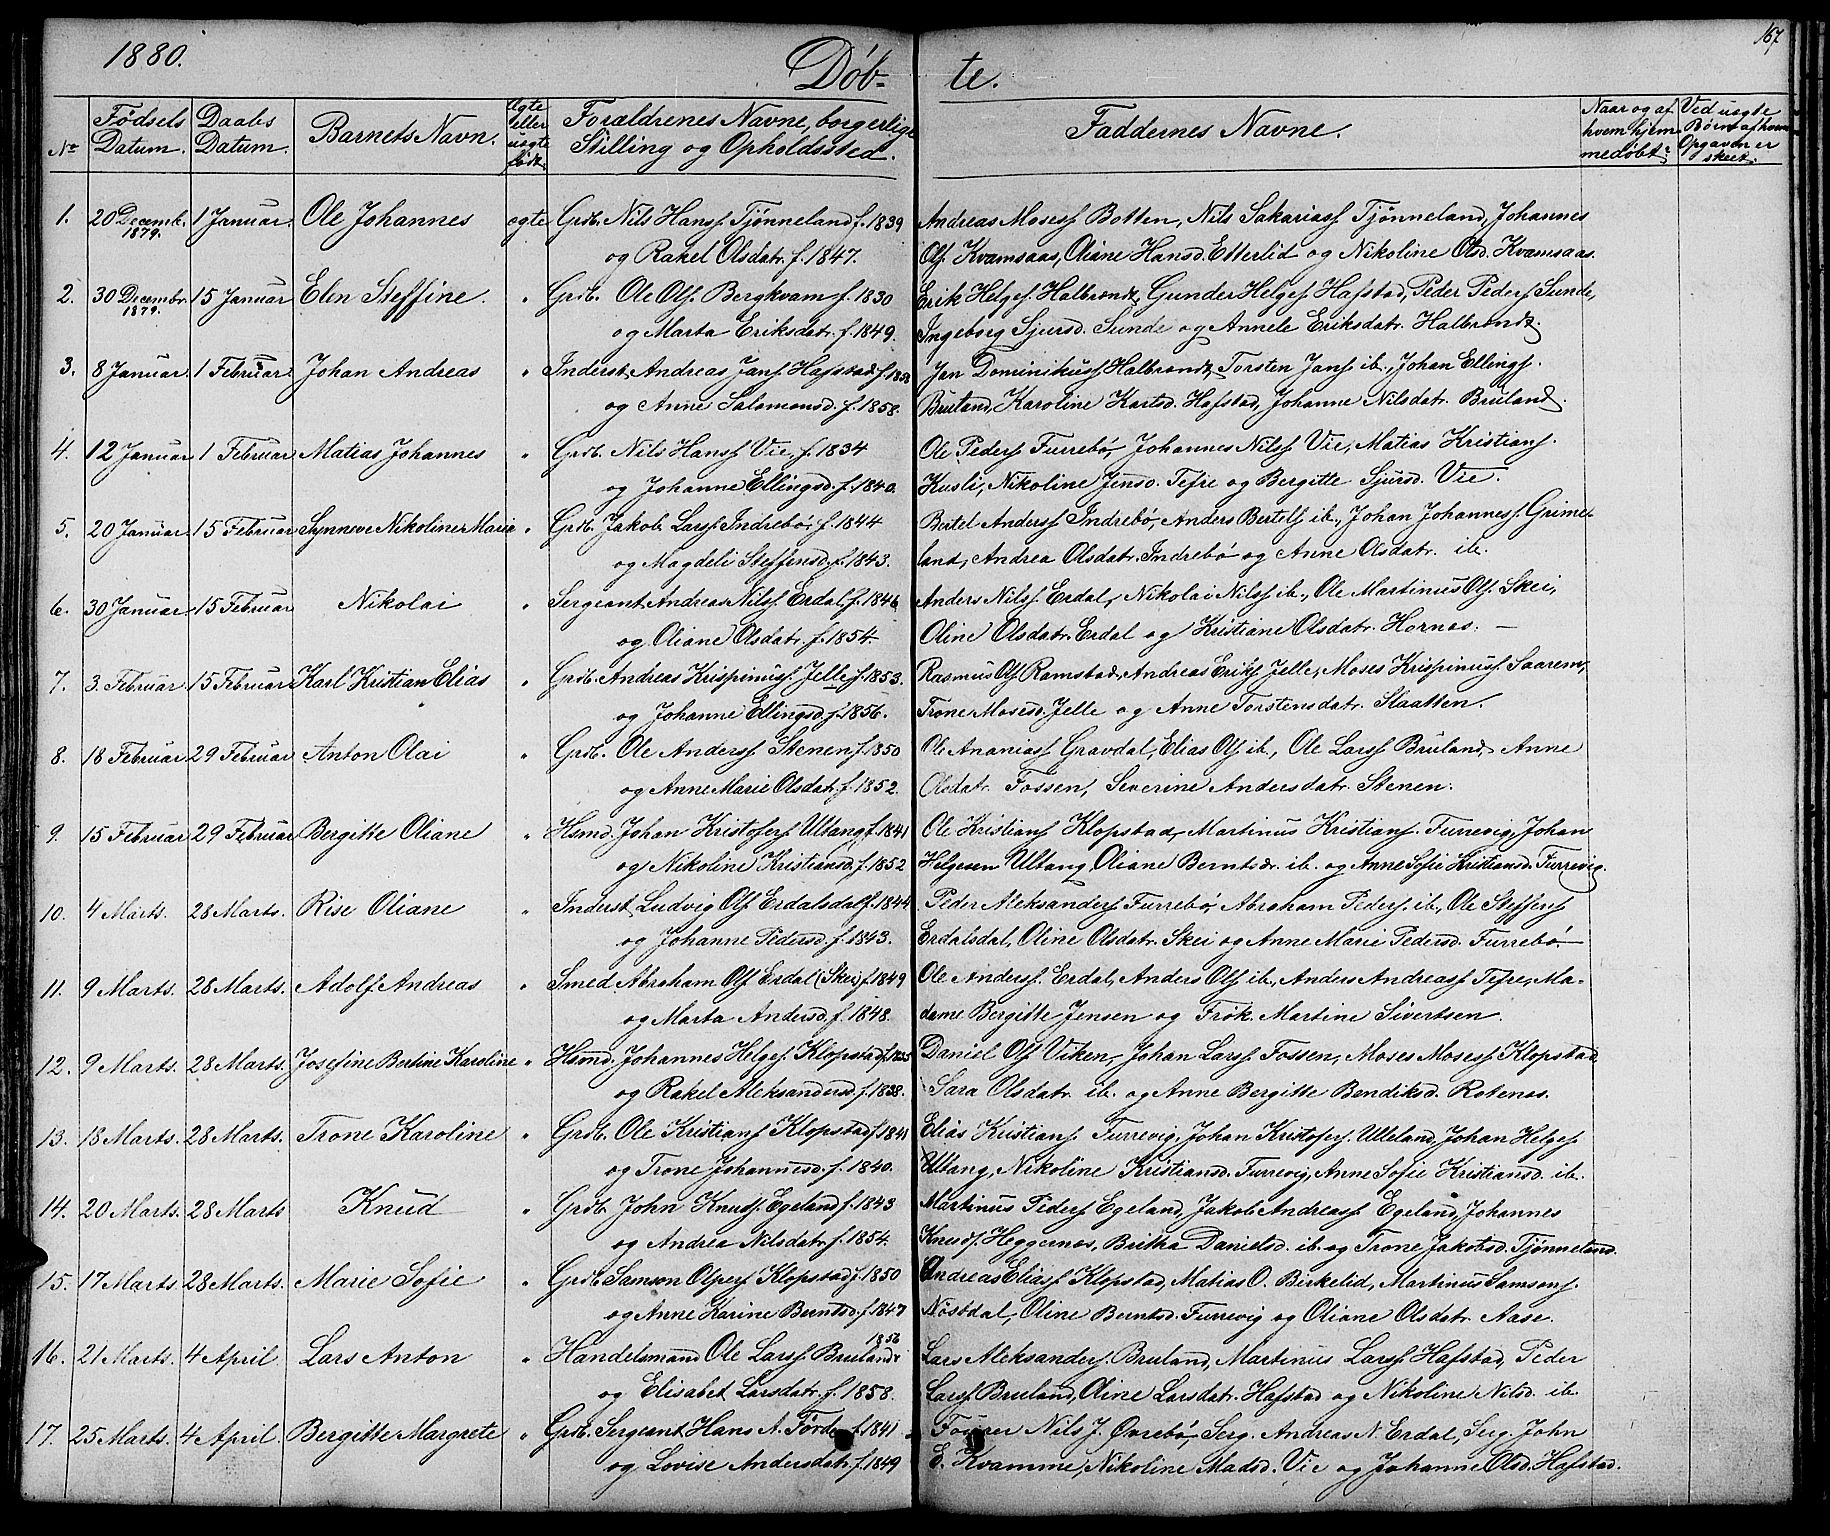 1880.
Døb-
te.
167
No
Fødsels Datum.
Daabs Datum.
Barnets Navn.
Ægte eller uægte født.
Forældrenes Navne, borgerlige Stilling og Opholdssted.
Faddernes Navne.
Naar og af hvem hjemmedøbt:
Ved uægte Børn af hvem Opgaven er skeet.
1. 20 Decemb. 1879. 1 Januar. Ole Johannes ægte Grdb. Nils Hanss. Tjønneland f. 1839 Andreas Moses. Botten, Nils Sakarias. Tjønneland, Johannes
og Rakel Olsdatr. f. 1847. Ols. Kvamsaas, Oliane Hansd. Etterlid og Nikoline Olsd. Kvamsaas.
2. 30 Decembr. 1879. 15 Januar Elen Steffine. " Grdb. Ole Ols. Bergkvam f. 1830 Erik Helges. Halbrendt, Gunder Helges. Hafstad, Peder Peders. Sunde,
og Marta Eriksdatr. f. 1849. Ingeborg Sjursd. Sunde og Annele Eriksdatr. Halbrendt.
3. 8 Januar. 1 Februar. Johan Andreas " Inderst Andreas Jans. Hafstad f. 1858 Jan Dominikus. Halbrendt, Torsten Jans. ib., Johan Ellings.
og Anne Salomonsd. f. 1858. Bruland, Karoline Karlsd. Hafstad, Johanne Nilsdatr. Bruland.
4. 12 Januar 1 Februar Matias Johannes " Grdb. Nils Hanss. Vie, f. 1834 Ole Peders. Furrebø, Johannes Nils. Vie, Matias Kristians.
og Johanne Ellingsd. f. 1840. Kusli, Nikoline Jensd. Tefre og Bergitte Sjursd. Vie.
5. 20 Januar 15 Februar Synneve Nikoline Marie " Grdb. Jakob Larss. Indrebø, f. 1844 Bertel Anderss. Indrebø, Anders Bertels. ib., Johan Johannes. Grime-
og Magdeli Steffensd. f. 1843. land, Andrea Olsdatr. Indrebø og Anne Olsdatr. ib.
6. 30 Januar 15 Februar Nikolai " Sergeant Andreas Nilss. Erdal, f. 1846 Anders Nilss. Erdal, Nikolai Nilss. ib., Ole Martinus Ols. Skei,
og Oliane Olsdatr. f. 1854. Oline Olsdatr. Erdal og Kristiane Olsdatr. Hornes. —
7. 3. Februar 15 Februar Karl Kristian Elias " Grdb. Andreas Krispinus. Jelle f. 1853. Rasmus Ols. Ramstad, Andreas Eriks. Jelle, Moses Krispinus. Saarem,
og Johanne Ellingsd. f. 1856. Trone Mosesd. Jelle og Anne Torstensdatr. Slaatten.
8. 18 Februar 29 Februar Anton Olai " Grdb. Ole Anderss. Stenen f. 1850 Ole Ananias. Gravdal, Elias Ols. ib., Ole Larss. Bruland, Anne
og Anne Marie Olsdatr. f. 1852. Olsdatr. Fossen, Severine Andersdatr. Stenen.
9. 15 Februar 29 Februar Bergitte Oliane " Hsmd. Johan Kristofers. Ultang f. 1841 Ole Kristians. Klopstad, Martinus Kristians. Furrevig, Johan
og Nikoline Kristiansd. f. 1852 Helgesen Ultang, Oliane Berntsdr. ib. og Anne Sofie Kristiansd. Furrevig.
10. 4 Marts. 28 Marts. Rise Oliane " Inderst Ludvig Ols. Erdalsdal f. 1844 Peder Aleksanders. Furrebø, Abraham Peders. ib., Ole Steffens.
og Johanne Pedersd. f. 1843. Erdalsdal, Oline Olsdatr. Skei og Anne Marie Pedersd. Furrebø.
11. 9 Marts. 28 Marts. Adolf Andreas " Smed Abraham Ols. Erdal (Skei) f. 1849 Ole Anderss. Erdal, Anders Ols. ib., Anders Andreas. Tefre, Ma-
og Marta Andersd. f. 1848. dame Bergitte Jensen og Frøk. Martine Sivertsen.
12. 9 Marts. 28 Marts. Josefine Bertine Karoline " Hsmd. Johannes Helges. Klopstad f. 1835 Daniel Ols. Viken, Johan Larss. Fossen, Moses Moses. Klopstad
og Rakel Aleksandersd. f. 1838. Sara Olsdatr. ib. og Anne Bergitte Bendiksd. Rotenes.
13. 18 Marts. 28 Marts. Trone Karoline " Grdb. Ole Kristians. Klopstad f. 1841 Elias Kristians. Furrevig, Johan Kristofers. Ulleland, Johan Helges.
og Trone Johannesd. f. 1840. Ultang, Nikoline Kristiansd. Furrevig, Anne Sofie Kristiansd. ib.
14. 20 Marts. 28 Marts Knud " Grdb. John Knuds. Egeland f. 1843 Martinus Peders. Egeland, Jakob Andreas. Egeland, Johannes
og Andrea Nilsdatr. f. 1854. Knuds. Heggernes, Britha Danielsd. ib. og Trone Jakobsd. Tjønneland.
15. 17 Marts 28 Marts. Marie Sofie " Grdb. Samson Olpers. Klopstad f. 1850 Andreas Elias. Klopstad, Matias O. Birkelid, Martinus Samsons.
og Anne Karine Berntsd. f. 1847 Nøstdal, Oline Berntsd. Furrevig og Oliane Olsdatr. Aase.
16. 21 Marts. 4 April Lars Anton " Handelsmand Ole Larss. Bruland 1856 Lars Aleksanders. Bruland, Martinus Larss. Hafstad, Peder
og Elisabet Larsdatr. f. 1858. Larss. Bruland, Oline Larsdatr. Hafstad og Nikoline Nilsd. ib.
17. 25 Marts. 4 April. Bergitte Margrete " Grdb. Sergeant Hans A. Førde f. 1841 Fourer Nils J. Øvrebø, Serg. Andreas N. Erdal, Serg. John
og Lovise Andersdatr. f. 1849 E. Kvamme, Nikoline Madsd. Vie og Johanne Olsd. Hafstad.